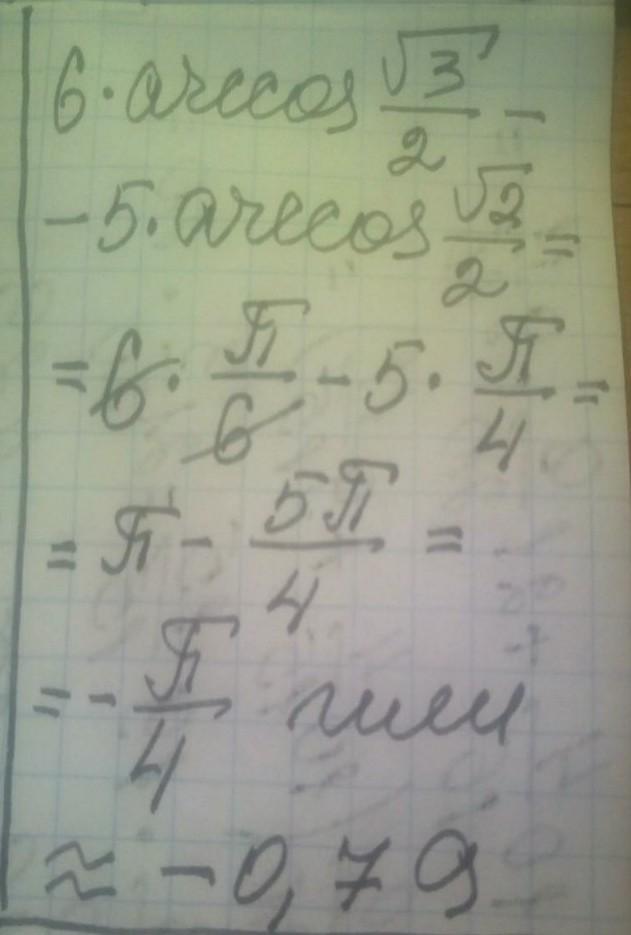 6·arccos √3/2 −
−5·arccos √2/2 =
=6·π/6 − 5·π/4 =
=π − 5π/4 =
=−π/4 или
≈ −0,79